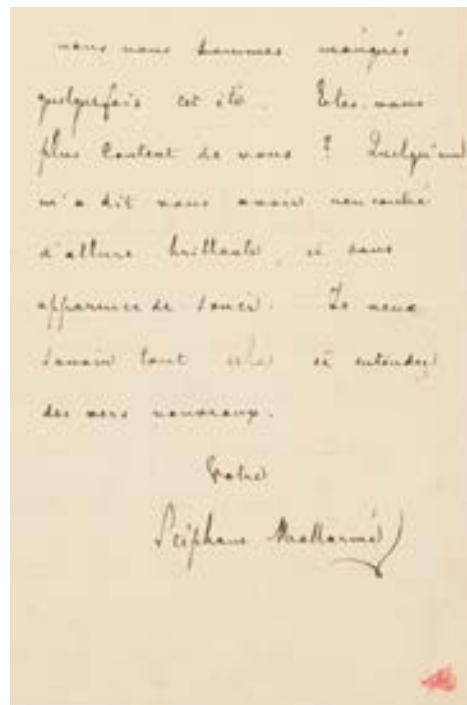 nous nous sommes manqués
quelquefois cet été. Etes-vous
plus content de vous ? Quelqu'un
m'a dit vous avoir rencontré
d'allure brillante, et sans
apparence de souci. Je veux
savoir tout cela et entendre
des vers nouveaux.
Votre
Stéphane Mallarmé